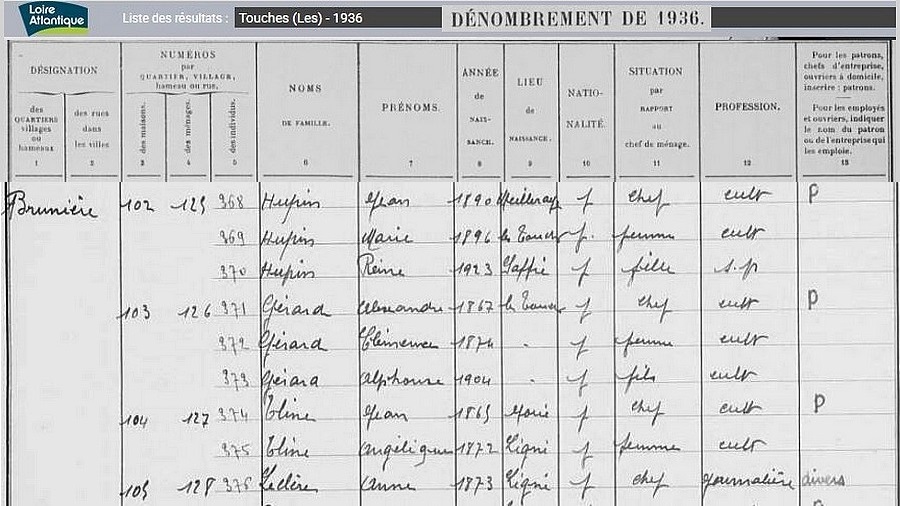 Loire Atlantique
Liste des résultats : Touches (Les) - 1936
DÉNOMBREMENT DE 1936.
DÉSIGNATION
des QUARTIERS villages ou hameaux
1
des rues dans les villes
2
NUMÉROS par QUARTIER, VILLAGE, hameau ou rue.
des maisons.
3
des ménages.
4
des individus.
5
NOMS DE FAMILLE.
6
PRÉNOMS.
7
ANNÉE de NAISSANCE.
8
LIEU de NAISSANCE.
9
NATIONALITÉ.
10
SITUATION par RAPPORT au chef de ménage.
11
PROFESSION.
12
Pour les patrons, chefs d'entreprise, ouvriers à domicile, inscrire : patrons.
Pour les employés et ouvriers, indiquer le nom du patron ou de l'entreprise qui les emploie.
13
Brunière 102 125 368 Hupin Jean 1890 Meilleray f chef cult P
369 Hupin Marie 1896 les Touches f. femme cult
370 Hupin Reine 1923 Saffré f fille s.p
103 126 371 Gérard Alexandre 1867 les Touches f chef cult P
372 Gérard Clémence 1874 - f femme cult
373 Gérard Alphonse 1904 - f fils cult
104 127 374 Jean 1865 f chef cult P
375 Angélique 1872 Ligné f femme cult
105 128 376 Leclère Anne 1873 Ligné f chef journalière divers